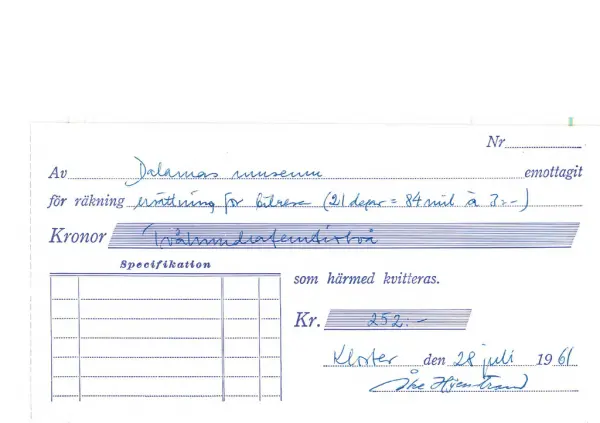 Nr
Av Dalarnas museum emottagit
för räkning ersättning för bilresa (21 dagar = 84 mil à 3:-)
Kronor Tvåhundrafemtiotvå
Specifikation
som härmed kvitteras.
Kr. 252:-
Kloster den 28 juli 1961
Åke